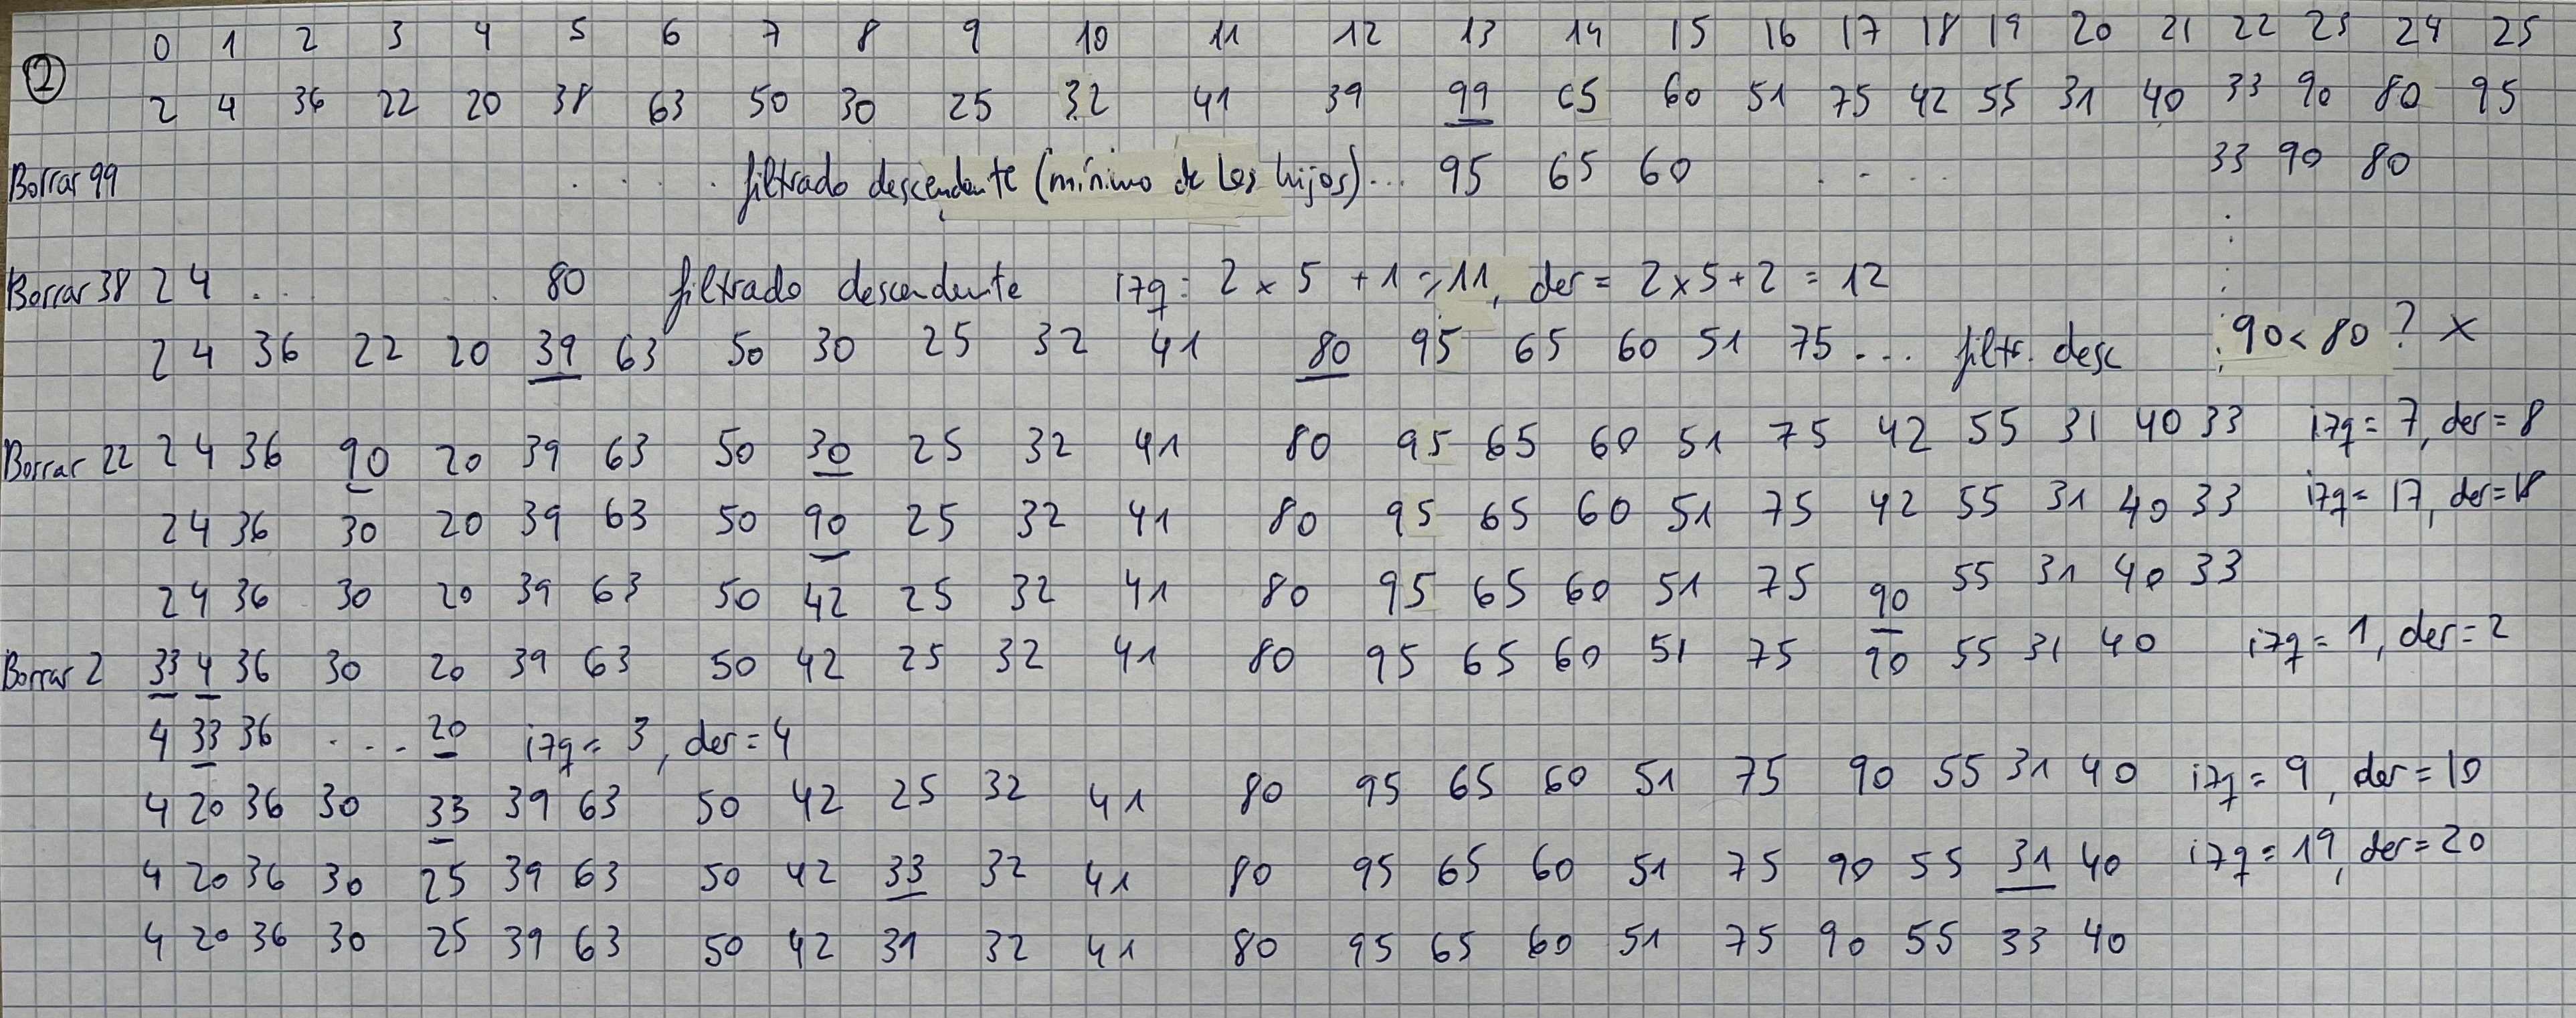 0 1 2 3 4 5 6 7 8 9 10 11 12 13 14 15 16 17 18 19 20 21 22 23 24 25
② 2 4 36 22 20 38 63 50 30 25 32 41 39 99 65 60 51 75 42 55 31 40 33 90 80 95
Borrar 99 . . . . filtrado descendente (mínimo de los hijos)... 95 65 60 . - . . 33 90 80
Borrar 38 2 4 ... . . 80 filtrado descendente izq = 2 x 5 + 1 = 11, der = 2 x 5 + 2 = 12
2 4 36 22 20 39 63 50 30 25 32 41 80 95 65 60 51 75 ... filtr. desc 90 < 80 ? x
Borrar 22 2 4 36 90 20 39 63 50 30 25 32 41 80 95 65 60 51 75 42 55 31 40 33 izq = 7, der = 8
2 4 36 30 20 39 63 50 90 25 32 41 80 95 65 60 51 75 42 55 31 40 33 izq = 17, der = 18
2 4 36 30 20 39 63 50 42 25 32 41 80 95 65 60 51 75 90 55 31 40 33
Borrar 2 33 4 36 30 20 39 63 50 42 25 32 41 80 95 65 60 51 75 90 55 31 40 izq = 1, der = 2
4 33 36 . ... 20 izq = 3, der = 4
4 20 36 30 33 39 63 50 42 25 32 41 80 95 65 60 51 75 90 55 31 40 izq = 9, der = 10
4 20 36 30 25 39 63 50 42 33 32 41 80 95 65 60 51 75 90 55 31 40 izq = 19, der = 20
4 20 36 30 25 39 63 50 42 31 32 41 80 95 65 60 51 75 90 55 33 40